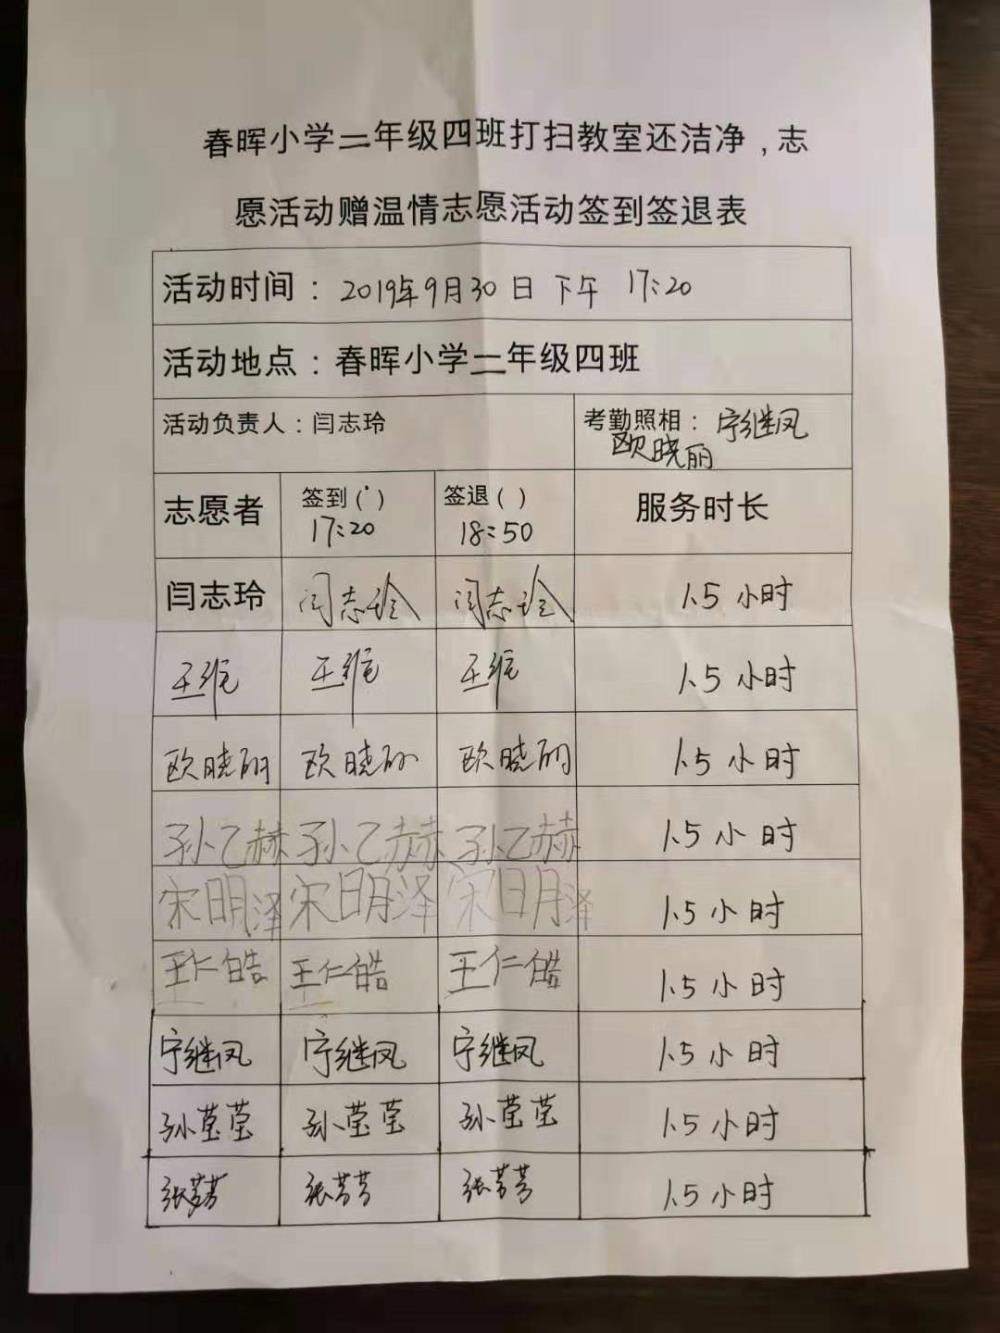 春晖小学二年级四班打扫教室还洁净，志
愿活动赠温情志愿活动签到签退表
活动时间：2019年9月30日下午 17:20
活动地点：春晖小学二年级四班
活动负责人：闫志玲 考勤照相：宁继凤
欧晓丽
志愿者 签到( ) 签退( ) 服务时长
17:20 18:50
闫志玲 闫志玲 闫志玲 1.5小时
王维 王维 王维 1.5小时
欧晓丽 欧晓丽 欧晓丽 1.5小时
孙乙赫 孙乙赫 孙乙赫 1.5小时
宋明泽 宋明泽 宋明泽 1.5小时
王仁皓 王仁皓 王仁皓 1.5小时
宁继凤 宁继凤 宁继凤 1.5小时
孙莹莹 孙莹莹 孙莹莹 1.5小时
张芳芳 张芳芳 张芳芳 1.5小时